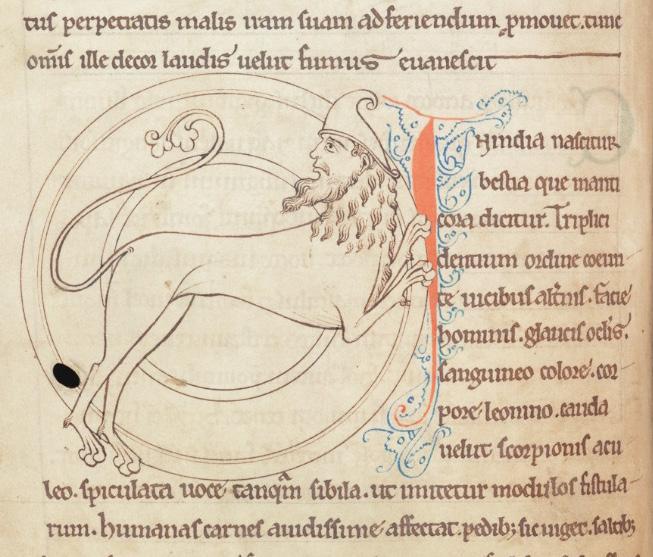 tus perpetratis malis iram suam ad feriendum ꝓmouet. tunc
omīs ille decor laudis uelut fumus euanescit
IN india nascitur
bestia que manti
cora dicitur. Triplici
dentium ordine coeun
te uicibus alt̄nis. facie
hominis. glaucis oc̄lis.
sanguineo colore. cor
pore leonino. cauda
uelut scorpionis acu
leo. spiculata uoce tanq̄m sibila. ut imitetur modulos fistula
rum. humanas carnes auidissime affectat. pedibꝫ sic uiget. saltibꝫ